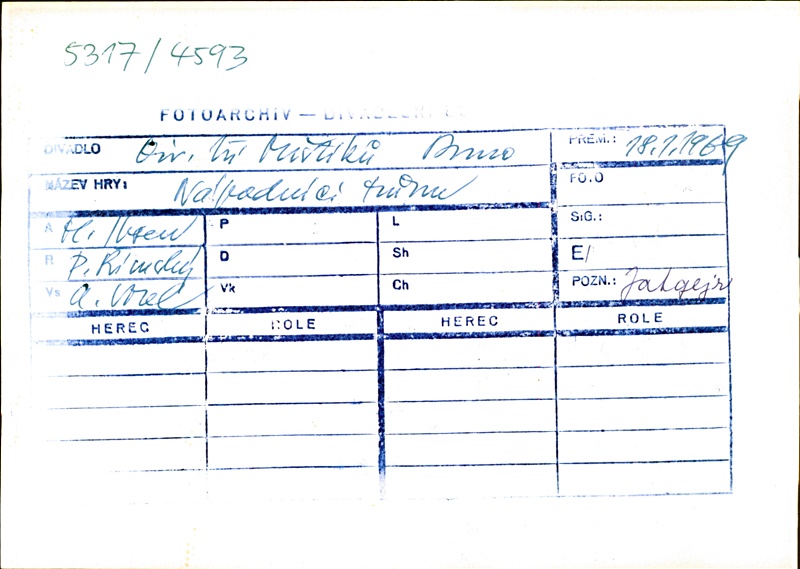 5317/4593
FOTOARCHIV — DIVADELNÍ
DIVADLO Div. bří Mrštíků Brno PREM.: 18.1.1969
NÁZEV HRY: Nápadníci trůnu FOTO
A H. Ibsen P L SIG.:
R P. Rímský D Sh E/
Vs A. Vk Ch POZN.: Jatgejr
HEREC ROLE HEREC ROLE